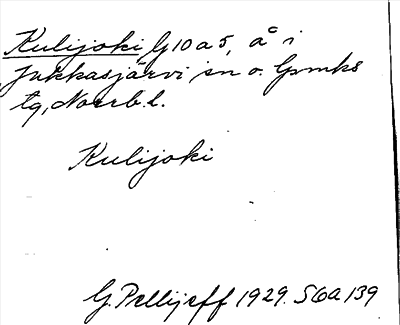 Kulijoki G10a5, å i
Jukkasjärvi sn o. Gvmks
tg, Norrb. l.
Kulijoki
G. Pellijeff 1929. S6a 139